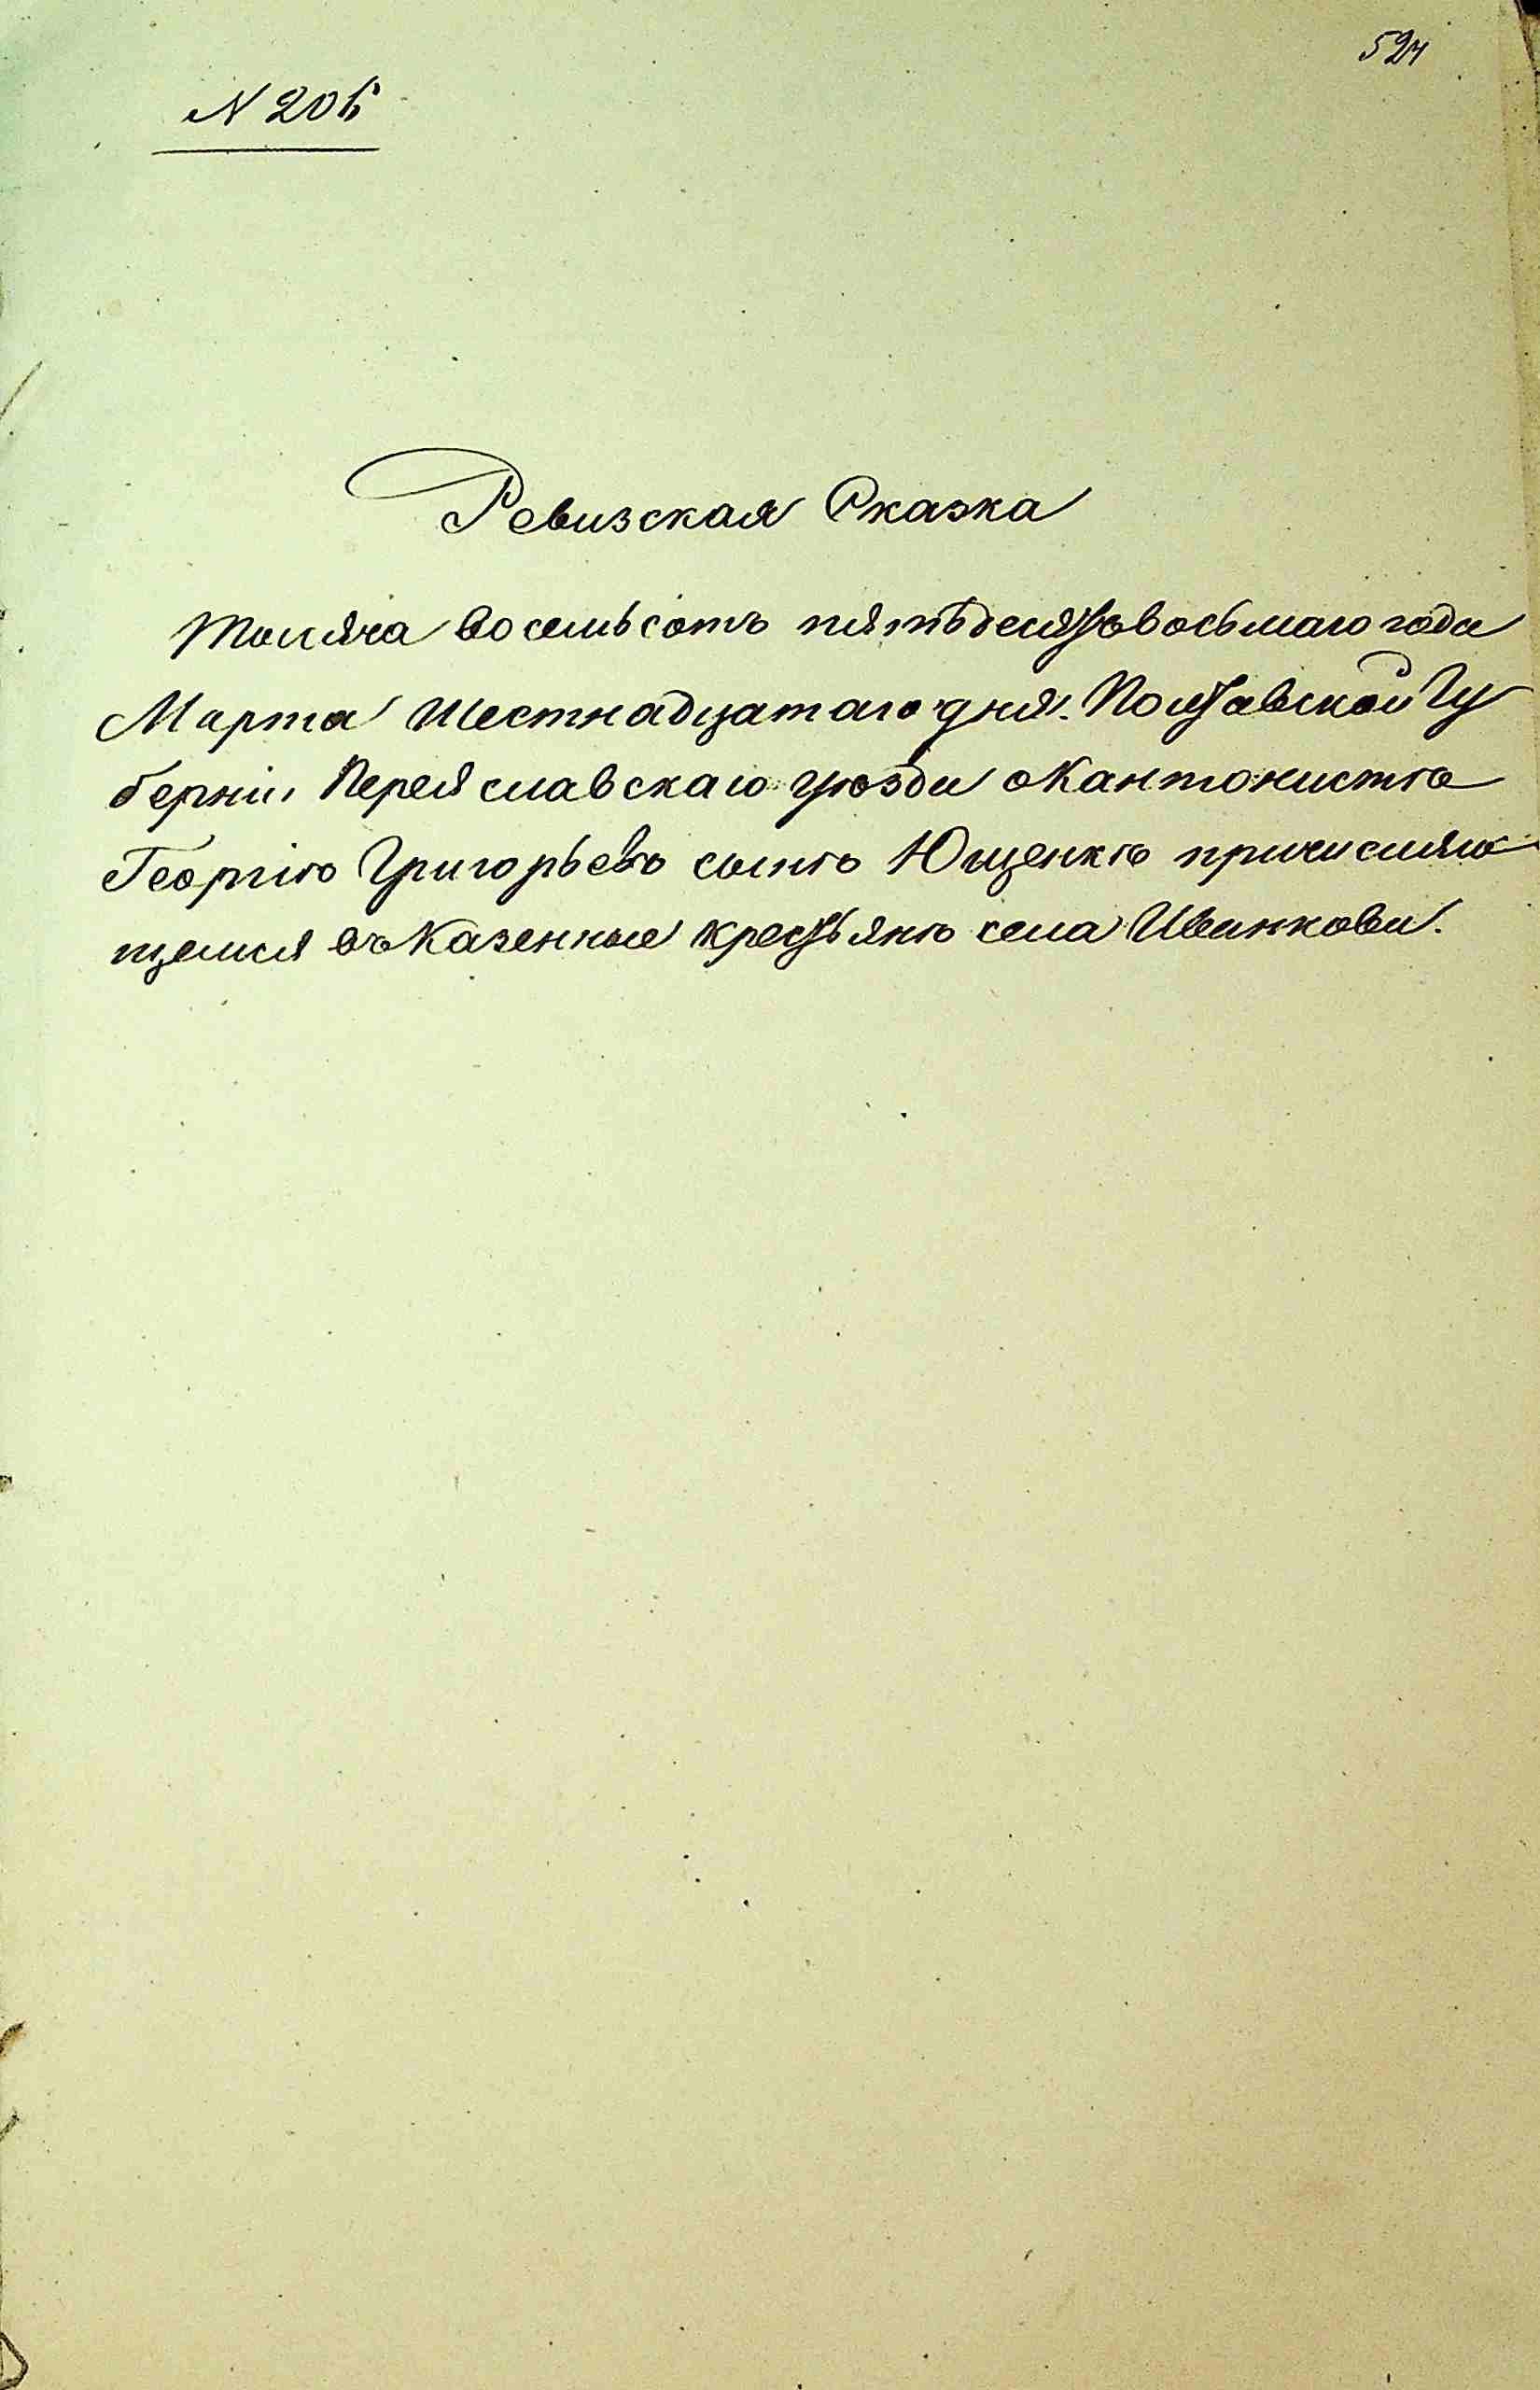 524
N 206
Ревизская Сказка
Тысяча восемьсотъ пятьдесятъ восьмаго года
Марта шестнадцатаго дня. Полтавской Гу
берніи Переяславскаго уѣзда о Кантонистѣ
Георгіѣ Григорьевѣ сынѣ Ющенкѣ причисляю
щемся въ Казенные крестьянѣ села Иванкова.